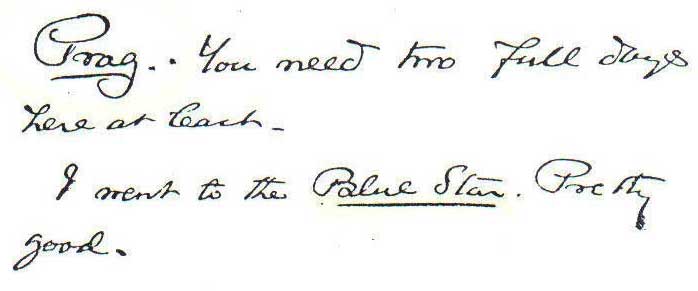 Prag.. You need two full days
here at least -
I went to the Blue Star. Pretty
good.